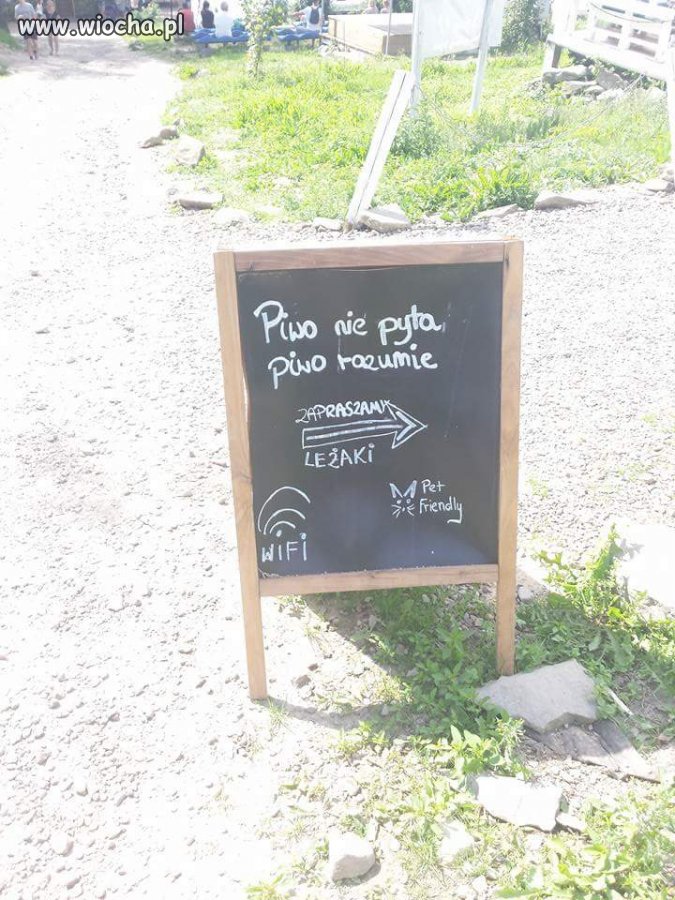 www.wiocha.pl
Piwo nie pyta,
piwo rozumie
ZAPRASZAMY
LEŻAKI
Pet
Friendly
WIFI